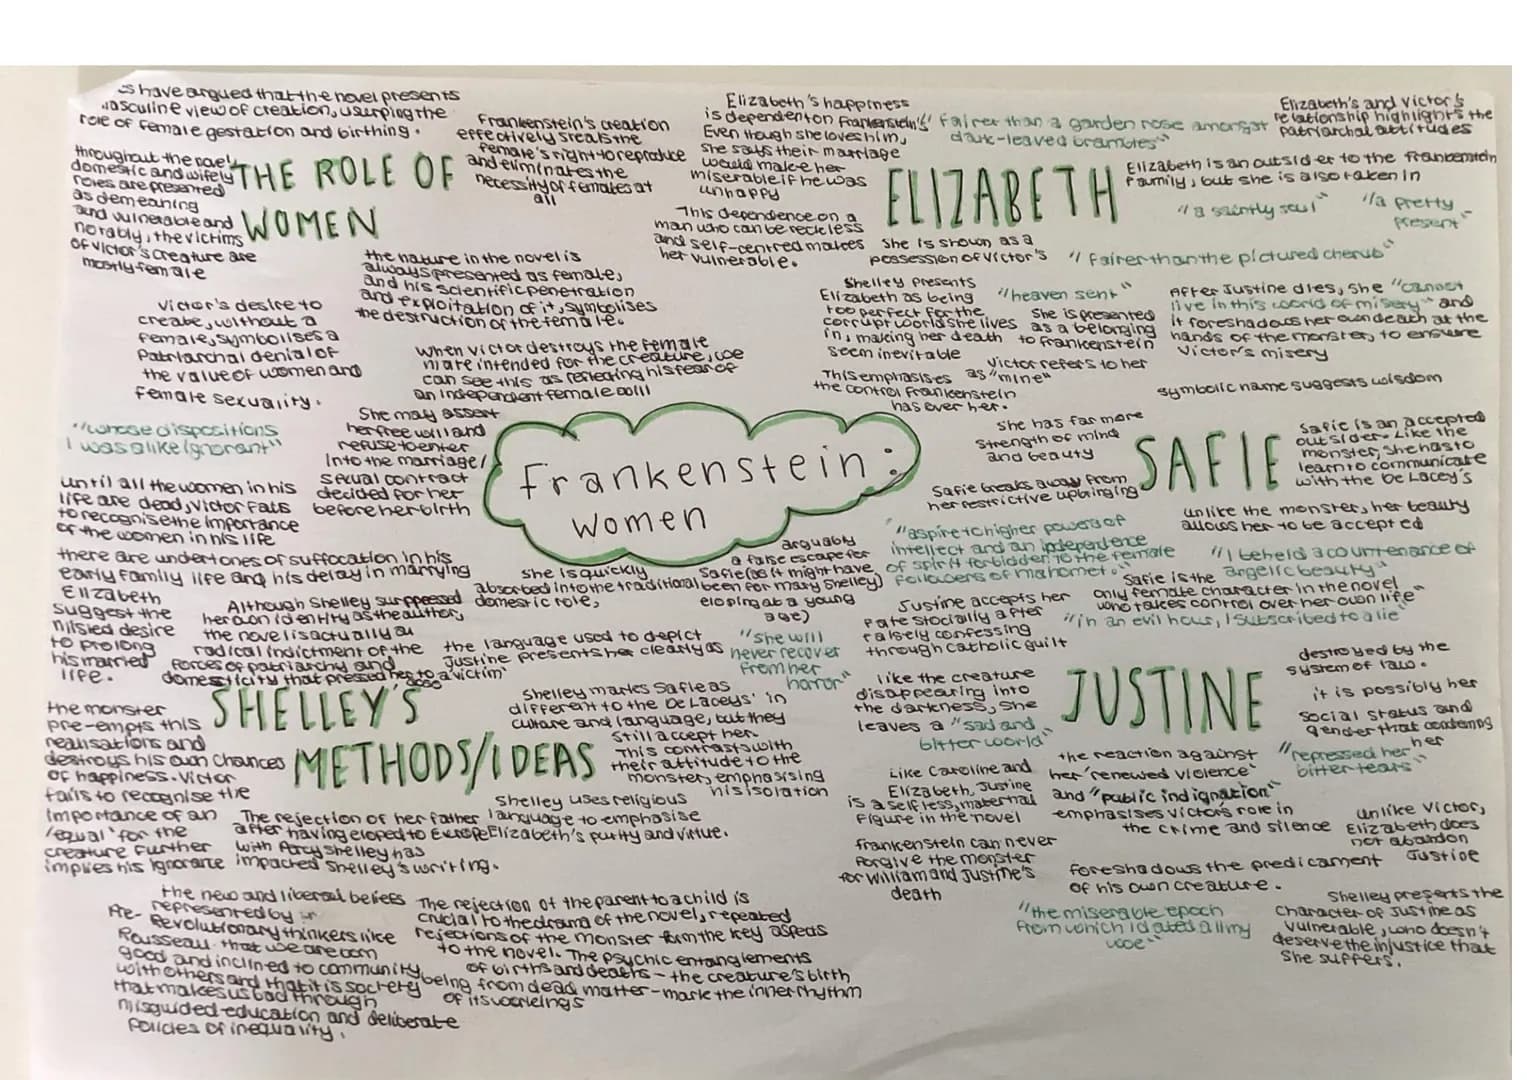 have argued that the novel presents
masculine view of creation, usurping the
role of female gestation and birthing.
Frankenstein's creation
effectively steals the
female's right to reproduce
and eliminates the
necessity of females at
all
throughout the novel
domestic and wifely
roles are presented
as demeaning
and vulnerable and
notably, the victims
of Victor's creature are
mostly female
THE ROLE OF
WOMEN
the nature in the novel is
always presented as female,
and his scientific penetration
and exploitation of it, symbolises
the destruction of the female.
Victor's desire to
create, without a
female, symbolises a
patriarchal denial of
the value of women and
female sexuality.
When Victor destroys the female
mate intended for the creature, we
can see this as reflecting his fear of
an independent female will
She may assert
her free will and
refuse to enter
into the marriage/
sexual contract
decided for her
before her birth
"whose dispositions
I was alike ignorant"
until all the women in his
life are dead, Victor fails
to recognise the importance
of the women in his life
there are undertones of suffocation in his
early family life and his delay in marrying
Elizabeth
suggest the
desire
to prolong
his married
life.
Elizabeth's happiness
is dependent on Frankenstein's
Even though she loves him,
she says their marriage
would make her
miserable if he was
unhappy
This dependence on a
man who can be reckless
and self-centred makes
her vulnerable.
"fairer than a garden rose amongst
dark-leaved brambles"
Elizabeth's and Victor's
relationship highlights the
patriarchal attitudes
ELIZABETH
Elizabeth is an outsider to the Frankenstein
family, but she is also taken in
"a saintly soul"
"a pretty
present"
She is shown as a
possession of Victor's
"fairer than the pictured cherub"
Shelley presents
Elizabeth as being
too perfect for the
corrupt world she lives
in, making her death
seem inevitable
"heaven sent"
She is presented
as a belonging
to Frankenstein
Victor refers to her
as "mine"
This emphasises
the control Frankenstein
has over her.
After Justine dies, she "cannot
live in this world of misery" and
it foreshadows her own death at the
hands of the monster, to ensure
Victor's misery
Frankenstein:
women
symbolic name suggests wisdom
She has far more
strength of mind
and beauty
SAFIE
Safie is an accepted
outsider. Like the
monster, she has to
learn to communicate
with the De Lacey's
Safie breaks away from
her restrictive upbringing
unlike the monster, her beauty
allows her to be accepted
"aspire to higher powers of
intellect and an independence
of spirit forbidden to the female
followers of mahomet."
"I beheld a countenance of
angelic beauty"
arguably
a false escape for
Safie (as it might have
been for Mary Shelley)
eloping at a young
age)
She is quickly
absorbed into the traditional
domestic role,
Safie is the
only female character in the novel
who takes control over her own life
Although Shelley suppressed
her own identity as the author,
the novel is actually a
radical indictment of the
forces of patriarchy and
domesticity that pressed her to
SHELLEY'S
METHODS/IDEAS
the language used to depict
Justine presents her clearly as
a 'victim'
"she will
never recover
from her
horror"
Shelley marks Safie as
different to the De Laceys' in
culture and language, but they
still accept her.
This contrasts with
their attitude to the
monster, emphasising
his isolation
the monster
pre-empts this
realisations and
destroys his own chances
of happiness. Victor
fails to recognise the
importance of an
'equal' for the
creature further
implies his ignorance
The rejection of her father
after having eloped to Europe
with Percy Shelley has
impacted Shelley's writing.
Shelley uses religious
language to emphasise
Elizabeth's purity and virtue.
the new and liberal beliefs
represented by
Pre-Revolutionary thinkers like
Rousseau: that we are born
good and inclined to community
with others and that it is society
that makes us bad through
misguided education and deliberate
policies of inequality.
The rejection of the parent to a child is
crucial to the drama of the novel, repeated
rejections of the monster form the key aspects
to the novel. The psychic entanglements
of births and deaths - the creature's birth
being from dead matter - mark the inner rhythm
of its workings
Justine accepts her
fate stoically after
falsely confessing
through catholic guilt
"in an evil hour, I subscribed to a lie"
JUSTINE
destroyed by the
system of law.
it is possibly her
social status and
gender that condemns
her
like the creature
disappearing into
the darkness, she
leaves a "sad and
bitter world"
the reaction against
her 'renewed violence'
and "public indignation"
emphasises Victor's role in
the crime and silence
"repressed her
bitter tears"
Like Caroline and
Elizabeth, Justine
is a selfless, maternal
figure in the novel
Unlike Victor,
Elizabeth does
not abandon
Justine
Frankenstein can never
forgive the monster
for William and Justine's
death
foreshadows the predicament
of his own creature.
"the miserable epoch
from which I dated all my
woe"
Shelley presents the
character of Justine as
vulnerable, who doesn't
deserve the injustice that
she suffers.